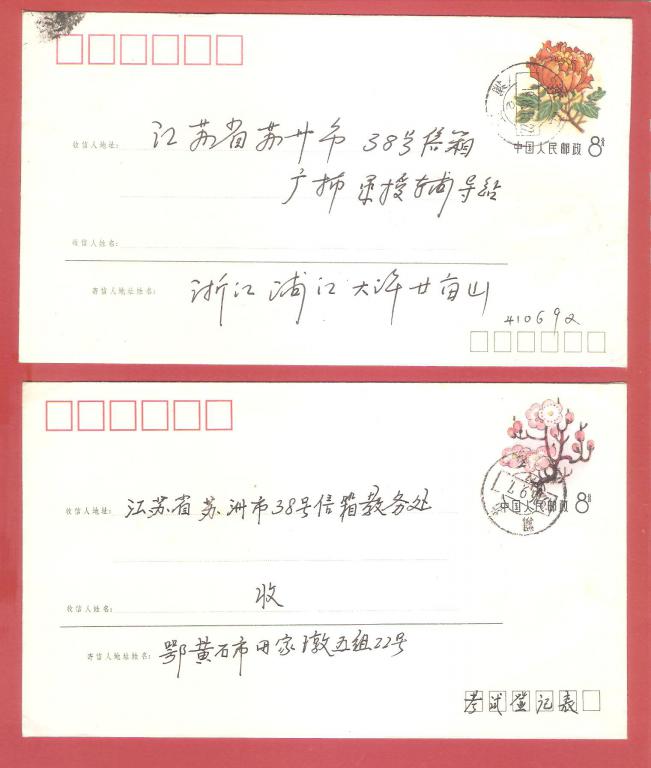 中国人民邮政 8分
收信人地址: 江苏省苏州市 38号信箱
广播函授辅导站
收信人姓名:
寄信人地址姓名: 浙江浦江大许廿亩山
410692
中国人民邮政 8分
收信人地址: 江苏省苏洲市38号信箱教务处
收信人姓名: 收
寄信人地址姓名: 鄂黄石市田家墩五组22号
考试登记表